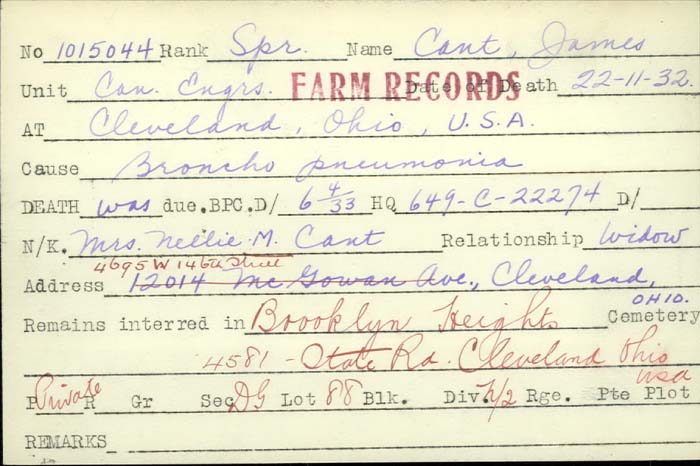 No 1015044 Rank Spr. Name Cant, James
Unit Can. Engrs. FARM RECORDS Date of Death 22-11-32.
AT Cleveland, Ohio, U.S.A.
Cause Broncho pneumonia
DEATH was due. BPC.D/ 6 4/33 HQ 649-C-22274 D/
N/K. Mrs. Nellie M. Cant Relationship Widow
4695 W 146th Street
Address 12014 Mc Gowan Ave., Cleveland,
OHIO.
Remains interred in Brooklyn Heights Cemetery
4581 - State Rd. Cleveland Ohio
USA
P Private R Gr Sec DG Lot 88 Blk. Div. N/2 Rge. Pte Plot
REMARKS